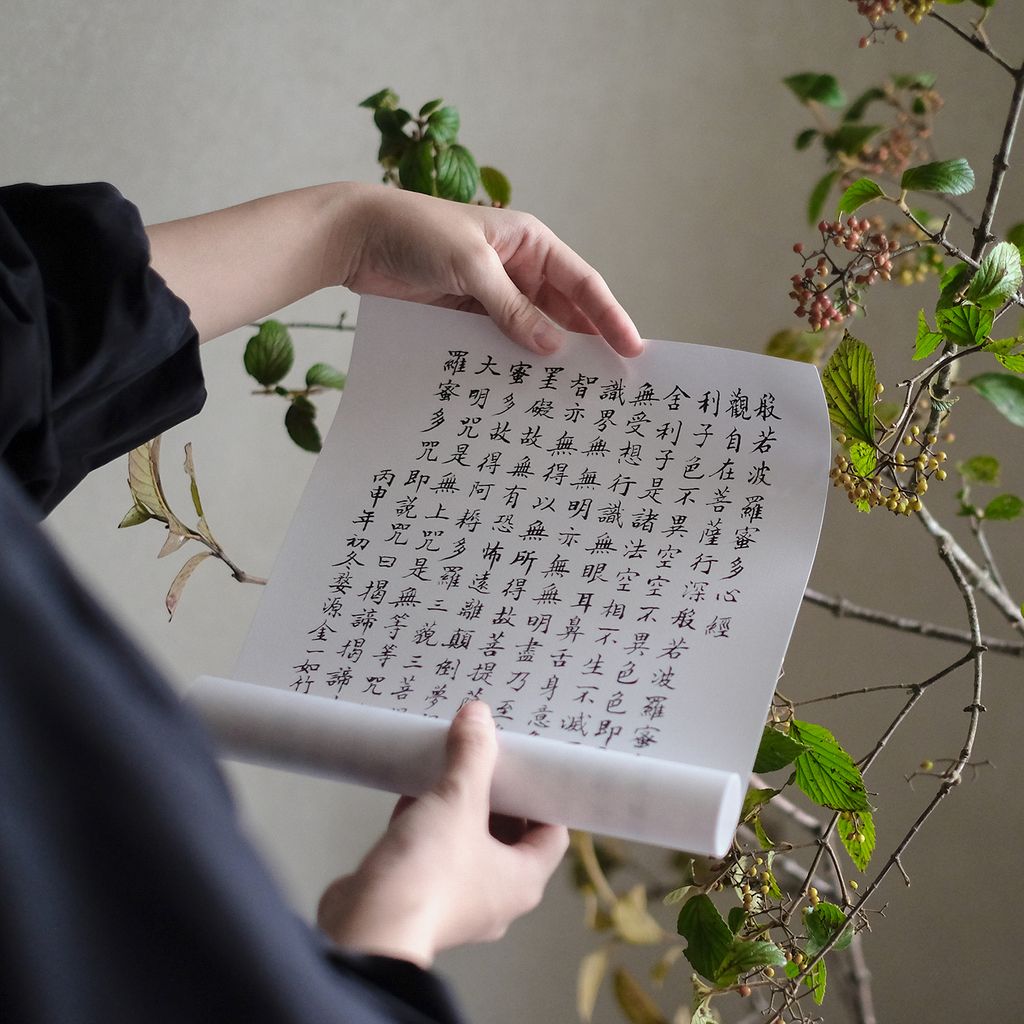 般若波羅蜜多心經
觀自在菩薩行深般若波羅蜜
利子色不異空空不異色色即
舍利子是諸法空相不生不滅
無受想行識無眼耳鼻舌身意
識界無無明亦無無明盡乃至
智亦無得以無所得故菩提薩
罣礙故無有恐怖遠離顛倒夢
蜜多故得阿耨多羅三藐三菩
大明咒是無上咒是無等等咒
羅蜜多咒即説咒曰揭諦揭諦
丙申年初冬婺源金一如竹